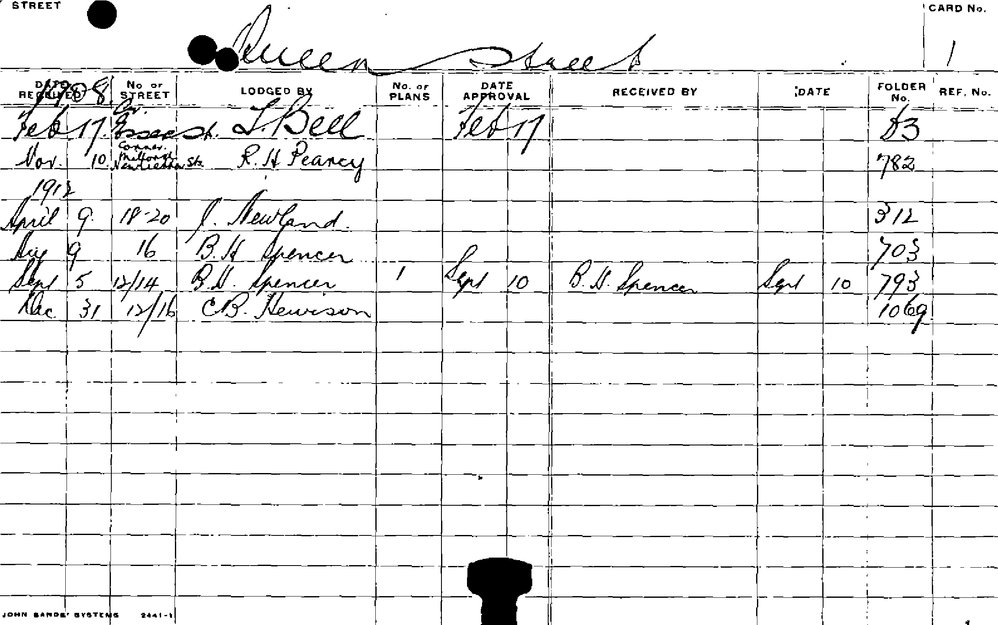 STREET Queen Street CARD No. 1
DATE RECEIVED No. OF STREET LODGED BY No. OF PLANS DATE APPROVAL RECEIVED BY DATE FOLDER No. REF. No.
1908
Feb 17 St. T. Bell Feb 17 83
Corner
Nov. 10 Sts. R. H. Pearcy 782
1912
April 9 18-20 J. Newland. 312
Aug 9 16 B. H. Spencer 703
Sept 5 12/14 B. H. Spencer 1 Sept 10 B. H. Spencer Sept 10 793
Dec 31 12/16 C B. Hewison 1069
JOHN SANDS' SYSTEMS 2441-1